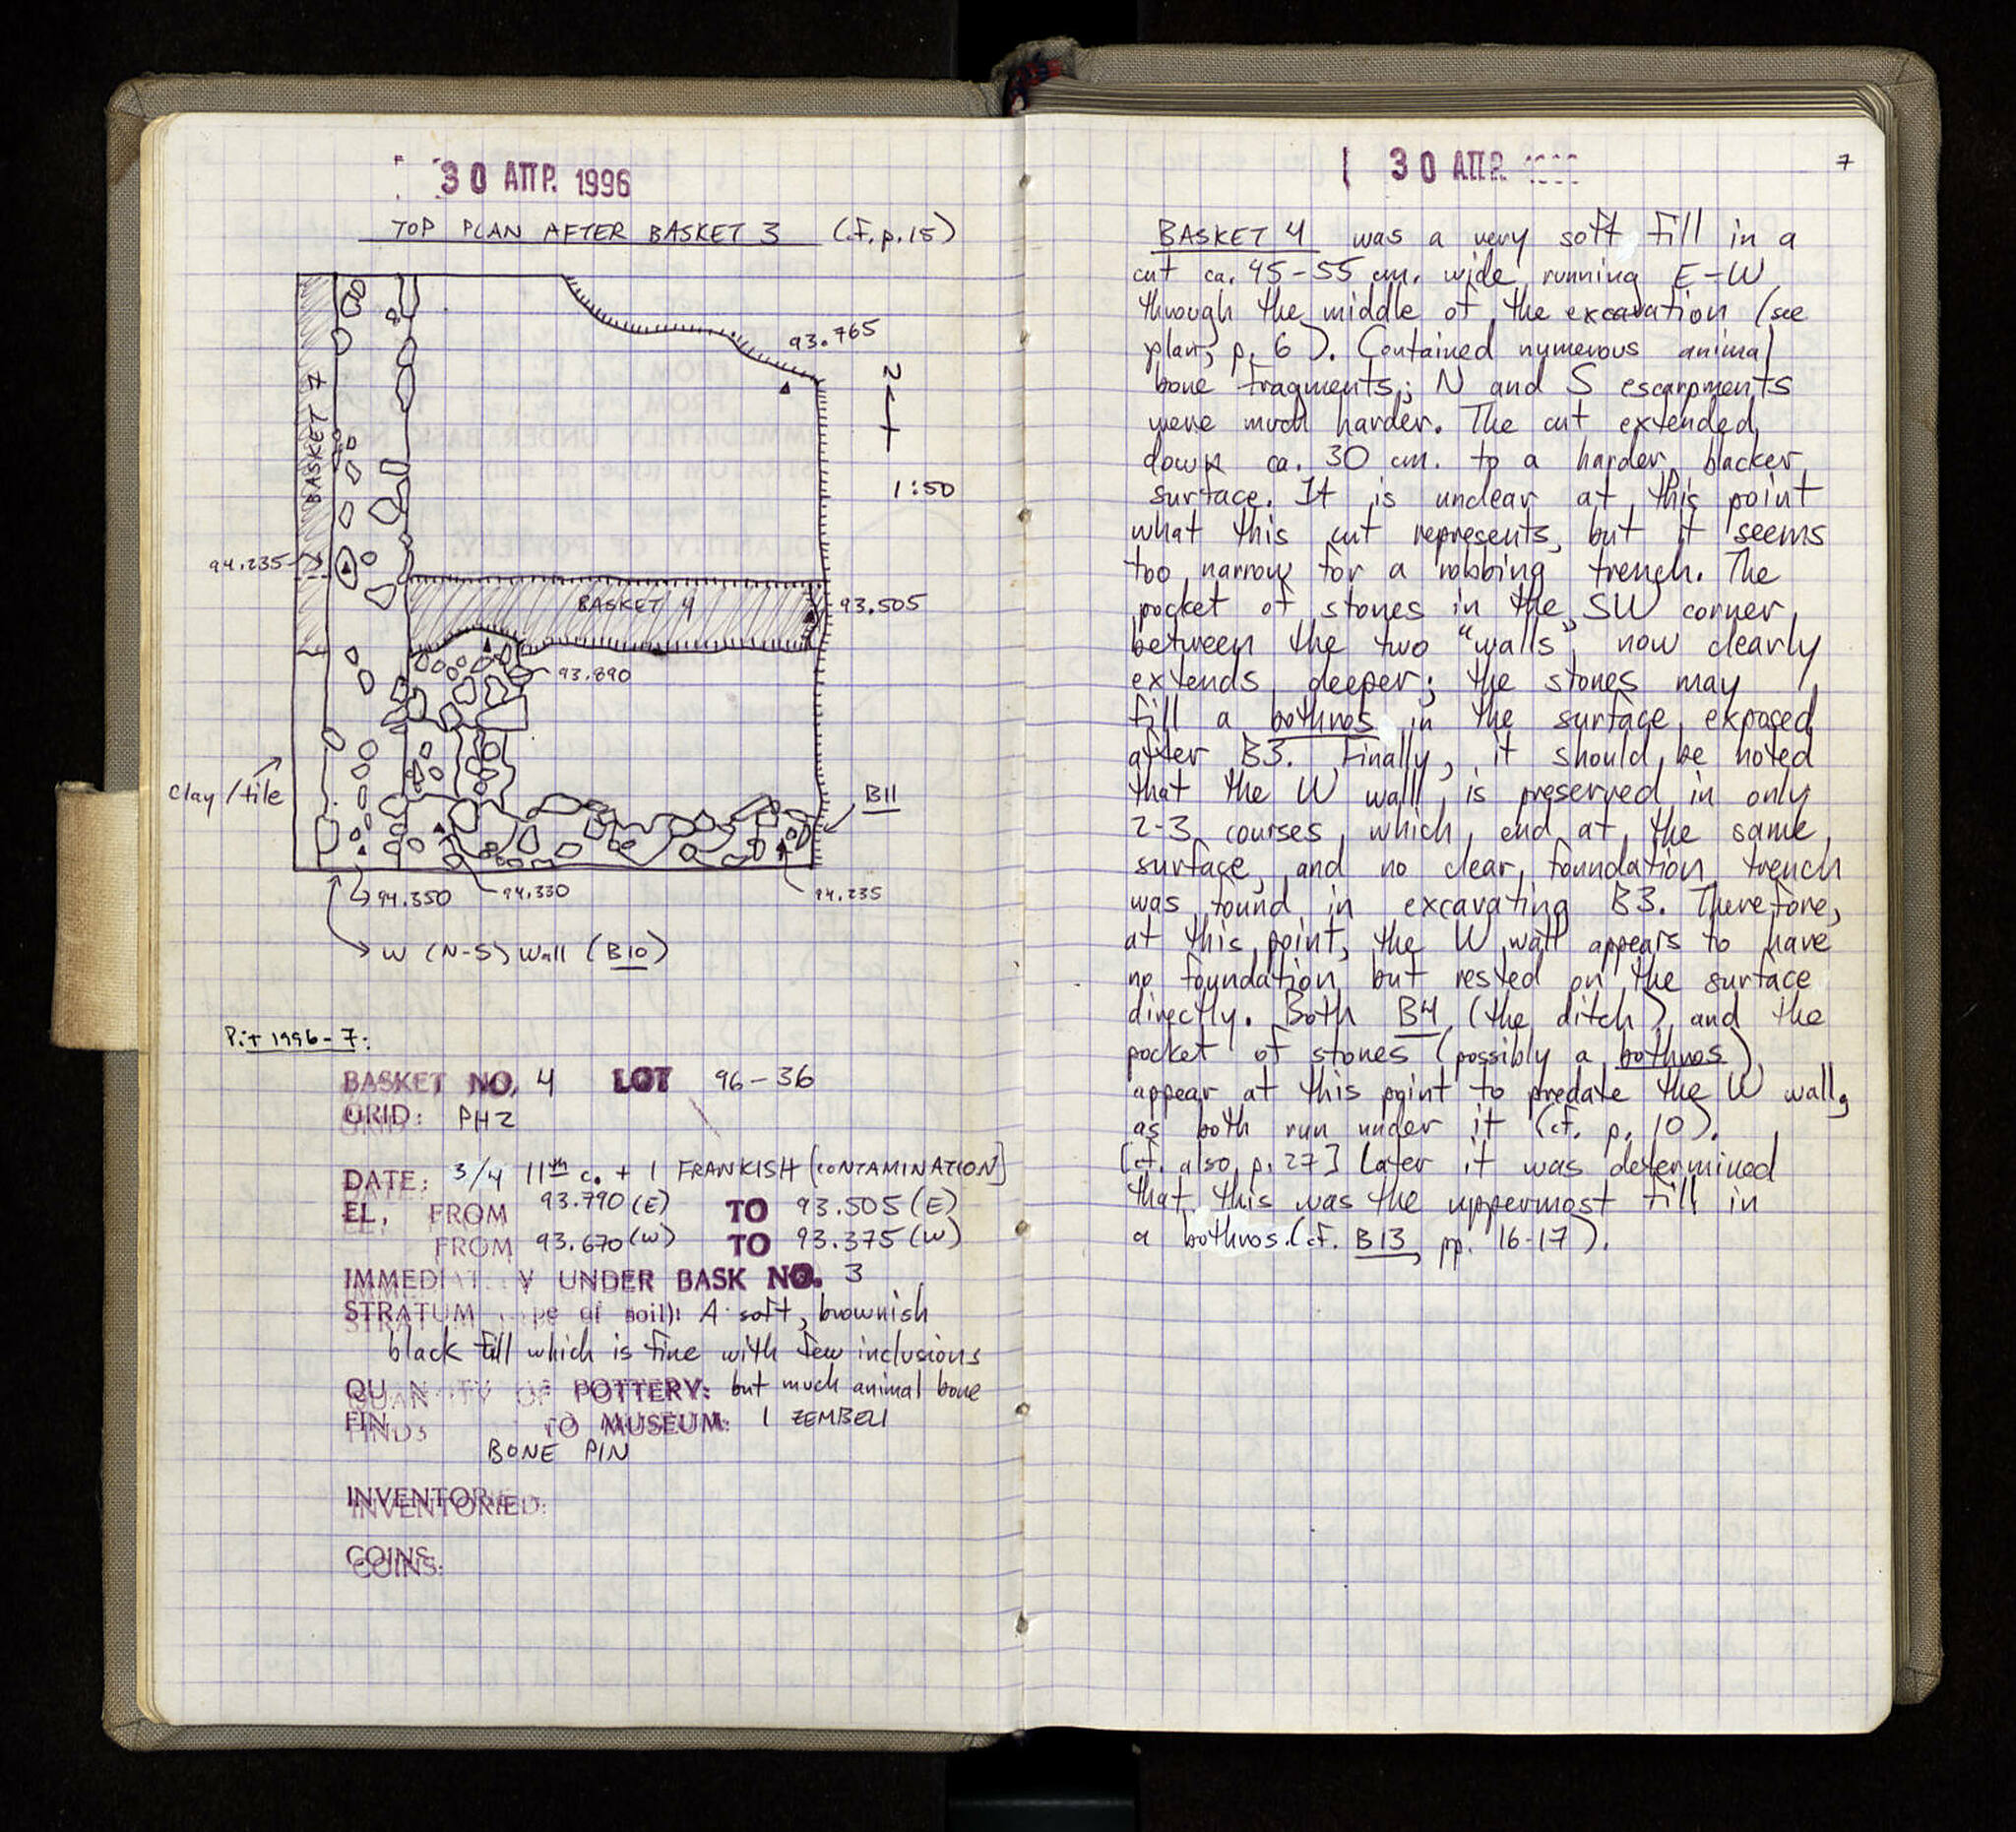 30 ΑΠΡ. 1996
TOP PLAN AFTER BASKET 3 (cf. p. 15)
93.765
N
1:50
BASKET 7
94.235
BASKET 4
93.505
93.890
clay/tile
B11
94.350
94.330
94.235
W (N-S) Wall (B10)
Pit 1996-7:
BASKET NO. 4 LOT 96-36
GRID: PHZ
DATE: 3/4 11th c. + 1 FRANKISH [CONTAMINATION]
EL. FROM 93.790 (E) TO 93.505 (E)
FROM 93.670 (W) TO 93.375 (W)
IMMEDIATELY UNDER BASK NO. 3
STRATUM (type of soil): A soft, brownish
black fill which is fine with few inclusions
QUANTITY OF POTTERY: but much animal bone
FINDS TO MUSEUM: 1 ZEMBELI
BONE PIN
INVENTORIED:
COINS:
30 ΑΠΡ.
7
BASKET 4 was a very soft fill in a
cut ca. 45-55 cm. wide running E-W
through the middle of the excavation (see
plan, p. 6). Contained numerous animal
bone fragments; N and S escarpments
were much harder. The cut extended
down ca. 30 cm. to a harder, blacker
surface. It is unclear at this point
what this cut represents, but it seems
too narrow for a robbing trench. The
pocket of stones in the SW corner
between the two "walls" now clearly
extends deeper; the stones may
fill a bothros in the surface exposed
after B3. Finally, it should be noted
that the W wall is preserved in only
2-3 courses, which end at the same
surface, and no clear foundation trench
was found in excavating B3. Therefore,
at this point, the W wall appears to have
no foundation but rested on the surface
directly. Both B4 (the ditch) and the
pocket of stones (possibly a bothros)
appear at this point to predate the W wall,
as both run under it (cf. p. 10).
[cf. also p. 27] Later it was determined
that this was the uppermost fill in
a bothros. (cf. B13, pp. 16-17).